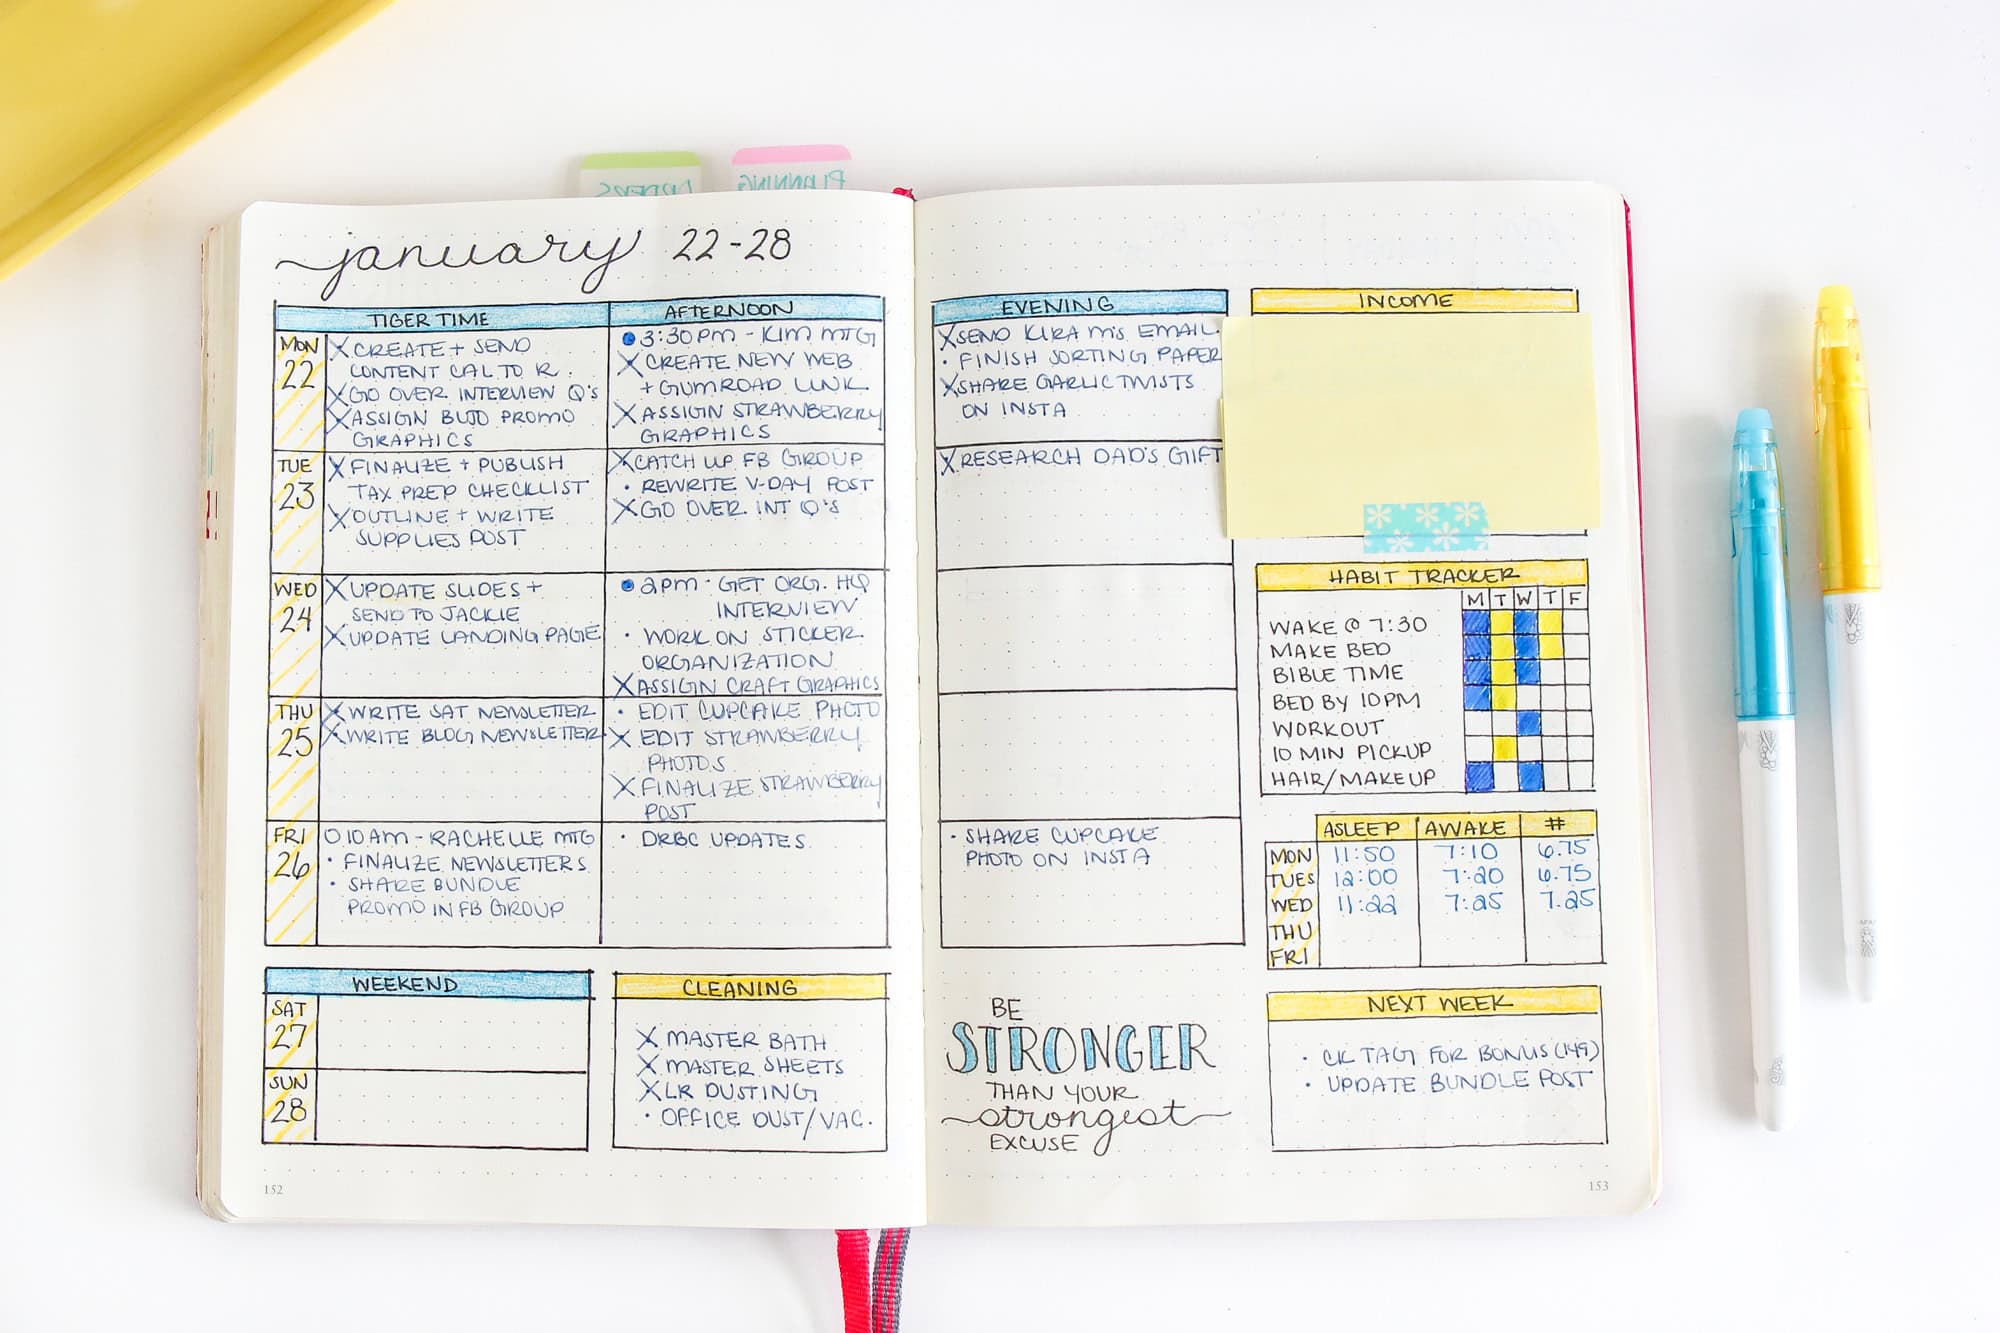 PLANNING
january 22-28
TIGER TIME
AFTERNOON
MON
22
X CREATE + SEND
CONTENT CAL TO R.
X GO OVER INTERVIEW Q'S
X ASSIGN BUJO PROMO
GRAPHICS
• 3:30PM - KIM MTG
X CREATE NEW WEB
+ GUMROAD LINK
X ASSIGN STRAWBERRY
GRAPHICS
TUE
23
X FINALIZE + PUBLISH
TAX PREP CHECKLIST
X OUTLINE + WRITE
SUPPLIES POST
X CATCH UP FB GROUP
• REWRITE V-DAY POST
X GO OVER INT Q'S
WED
24
X UPDATE SLIDES +
SEND TO JACKIE
X UPDATE LANDING PAGE
• 2PM - GET ORG. HQ
INTERVIEW
• WORK ON STICKER
ORGANIZATION
X ASSIGN CRAFT GRAPHICS
THU
25
X WRITE SAT NEWSLETTER
X WRITE BLOG NEWSLETTER
• EDIT CUPCAKE PHOTO
X EDIT STRAWBERRY
PHOTOS
X FINALIZE STRAWBERRY
POST
FRI
26
O 10AM - RACHELLE MTG
• FINALIZE NEWSLETTERS
• SHARE BUNDLE
PROMO IN FB GROUP
• DRBC UPDATES
WEEKEND
SAT
27
SUN
28
CLEANING
X MASTER BATH
X MASTER SHEETS
X LR DUSTING
• OFFICE DUST/VAC.
152
EVENING
X SEND KIRA M'S EMAIL
• FINISH SORTING PAPER
X SHARE GARLIC TWISTS
ON INSTA
X RESEARCH DAD'S GIFT
• SHARE CUPCAKE
PHOTO ON INSTA
BE
STRONGER
THAN YOUR
strongest
EXCUSE
INCOME
HABIT TRACKER
M T W T F
WAKE @ 7:30
MAKE BED
BIBLE TIME
BED BY 10PM
WORKOUT
10 MIN PICKUP
HAIR/MAKEUP
ASLEEP AWAKE #
MON 11:50 7:10 6.75
TUES 12:00 7:20 6.75
WED 11:22 7:25 7.25
THU
FRI
NEXT WEEK
• CK TAG FOR BONUS (149)
• UPDATE BUNDLE POST
153